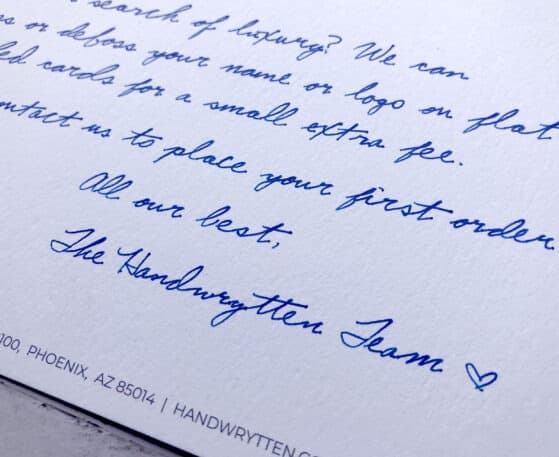 search of luxury? We can
or deboss your name or logo on flat
cards for a small extra fee.
us to place your first order
All our best,
The Handwrytten Team ♡
100, PHOENIX, AZ 85014 | HANDWRYTTEN